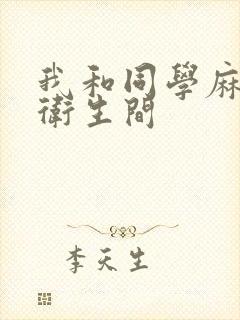 我和同學麻
衛生間
李天生